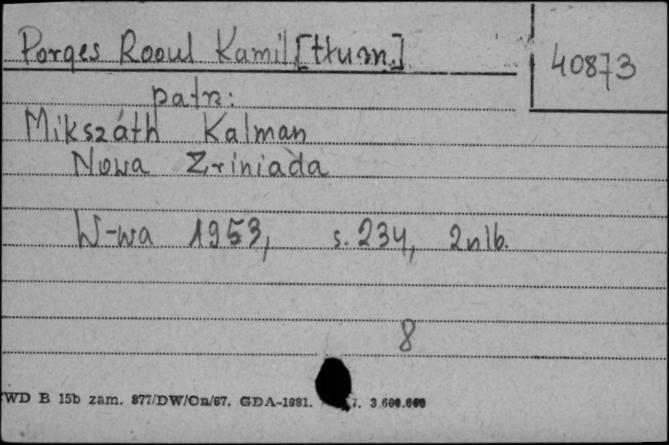 Porges Rooul Kamil [tłum.]
40873
patrz:
Mikszáth Kalman
Nowa Zriniada
W-wa 1953, s. 234, 2 nlb.
8
WD B 15b zam. 877/DW/On/67. GDA-1881. 7. 3.600.000